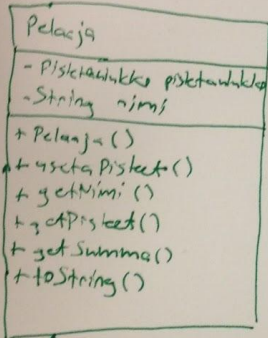 Pelaaja
- Pistetaulukko pistetaulukko
- String nimi
+ Pelaaja()
+ asetaPisteet()
+ getNimi()
+ getPisteet()
+ getSumma()
+ toString()